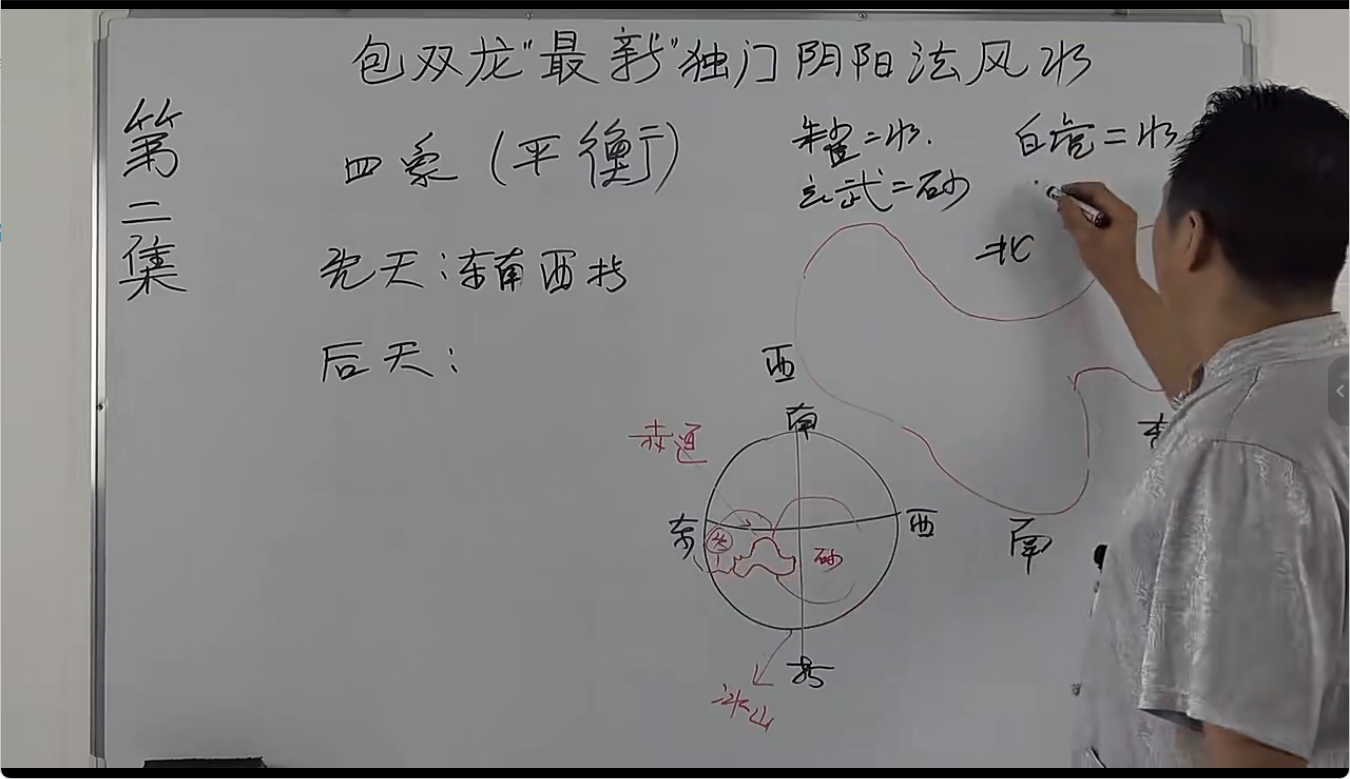 包双龙"最新"独门阴阳法风水
第二集
四象(平衡)
先天:东南西北
后天:
朱雀=水.
玄武=砂
白虎=水
北
西
南
赤道
东
西
砂
南
北
冰山